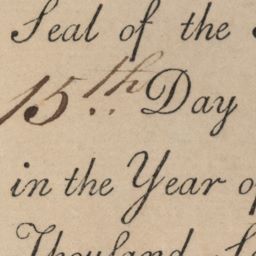 Seal of the
15th Day
in the Year of
Thouſand